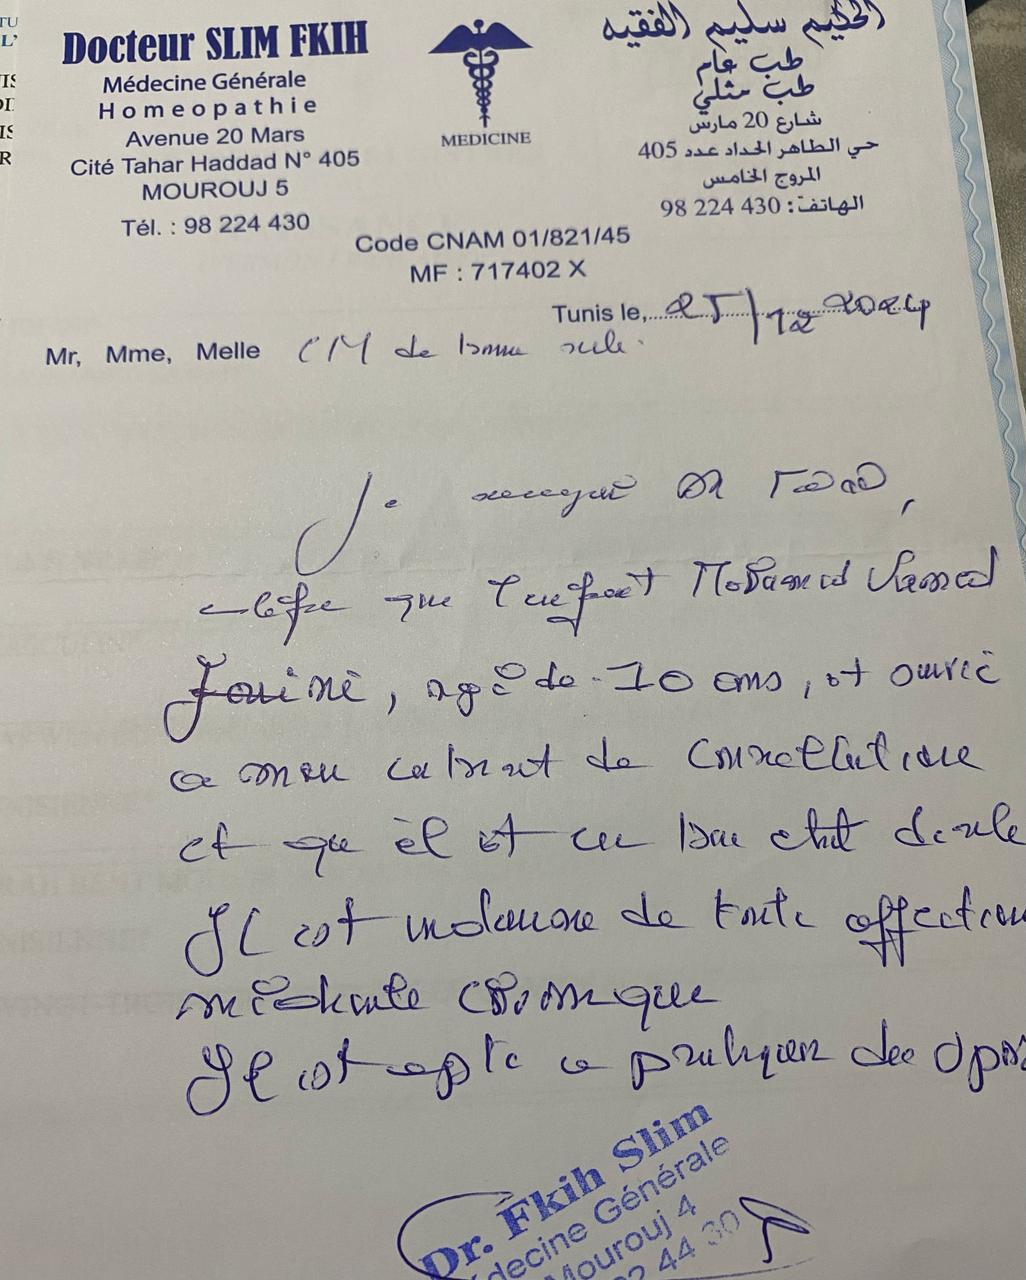 Docteur SLIM FKIH
Médecine Générale
Homeopathie
Avenue 20 Mars
Cité Tahar Haddad N° 405
MOUROUJ 5
Tél. : 98 224 430
MEDICINE
الحكيم سليم الفقيه
طب عام
طب مثلي
شارع 20 مارس
حي الطاهر الحداد عدد 405
المروج الخامس
الهاتف: 430 224 98
Code CNAM 01/821/45
MF : 717402 X
Tunis le, 25/12 2024
Mr, Mme, Melle CM de bonne
Je
que l'enfant Mohamed
, agé de 10 ans, est
a mon cabinet de consultation
et que il est en bon etat de
Il est indemne de toute affection
chronique
Il est apte a pratiquer des
Dr. Fkih Slim
decine Générale
Mourouj 4
2 44 30